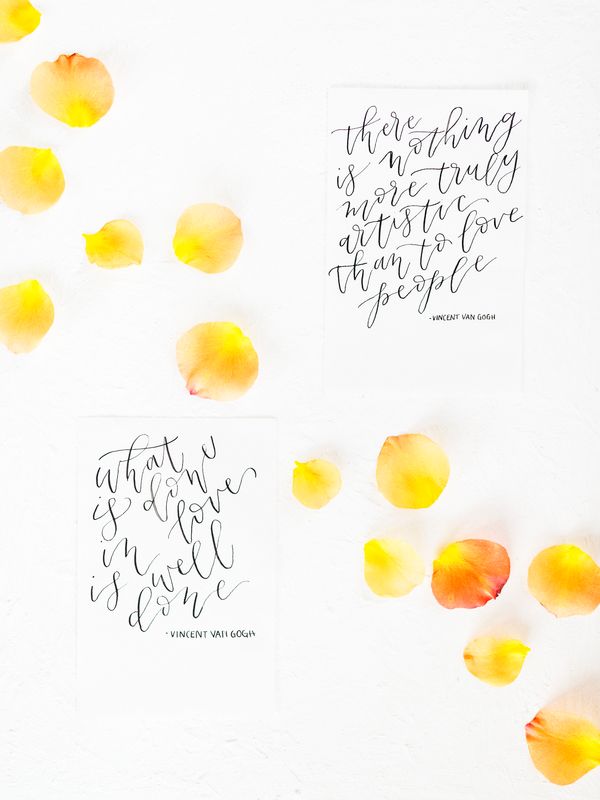 there
is nothing
more truly
artistic
than to love
people
-VINCENT VAN GOGH
what
is done
in love
is well
done
-VINCENT VAN GOGH